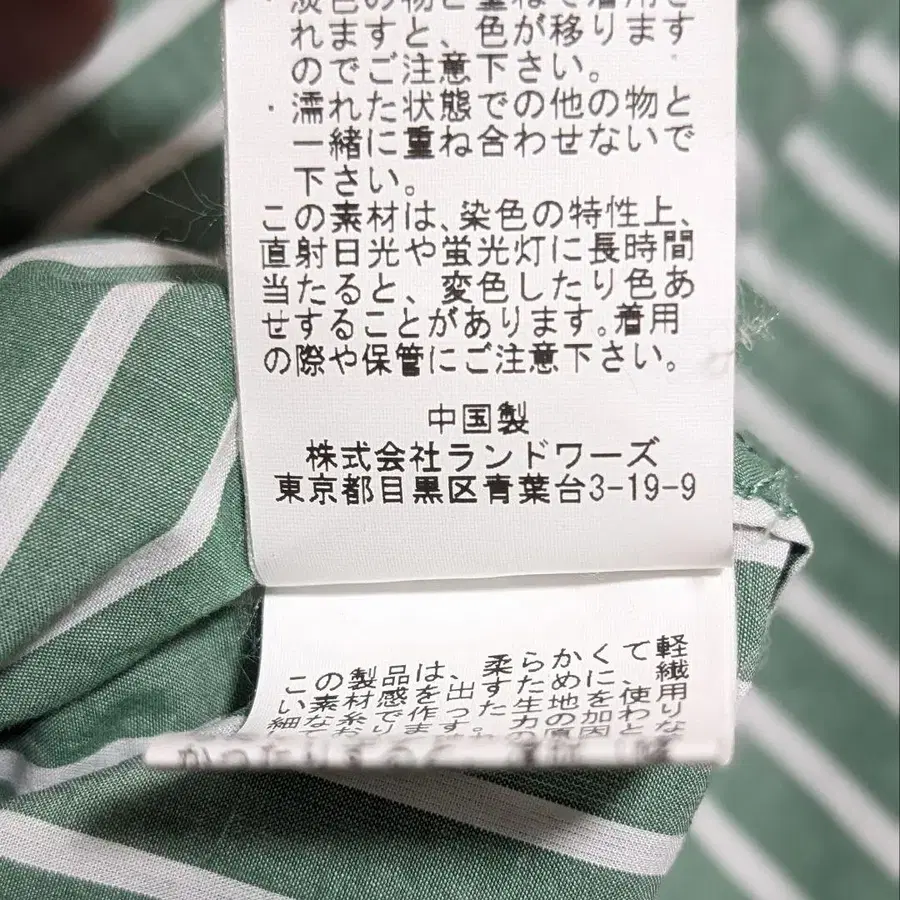 ・淡色の物と重ねて着用さ
れますと、色が移ります
のでご注意下さい。
・濡れた状態での他の物と
一緒に重ね合わせないで
下さい。
この素材は、染色の特性上、
直射日光や蛍光灯に長時間
当たると、変色したり色あ
せすることがあります。着用
の際や保管にご注意下さい。
中国製
株式会社ランドワーズ
東京都目黒区青葉台3-19-9
この製品は、柔らかくて軽
い素材感を出すために、繊
細な糸で作った生地を使用